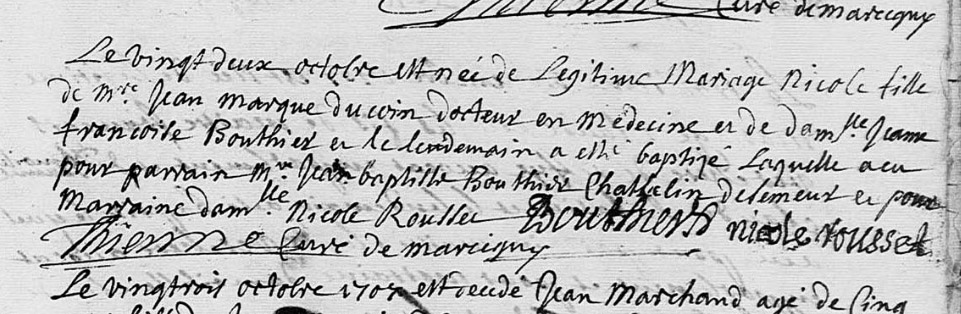 Curé de marcigny
Le vingt deux octobre est née de Legitime Mariage Nicole fille
de mre Jean marque ducoin docteur en Médecine et de damlle Jeanne
francoise Bouthier et le lendemain a esté baptizé Laquelle a eu
pour parrain mre Jean baptiste Bouthier Chastelin de semeur et pour
Marraine damlle Nicole Rousset Bouthier nicole rousset
Thienne Curé de marcigny
Le vingtrois octobre 1707 est decedé Jean Marchand agé de Cinq